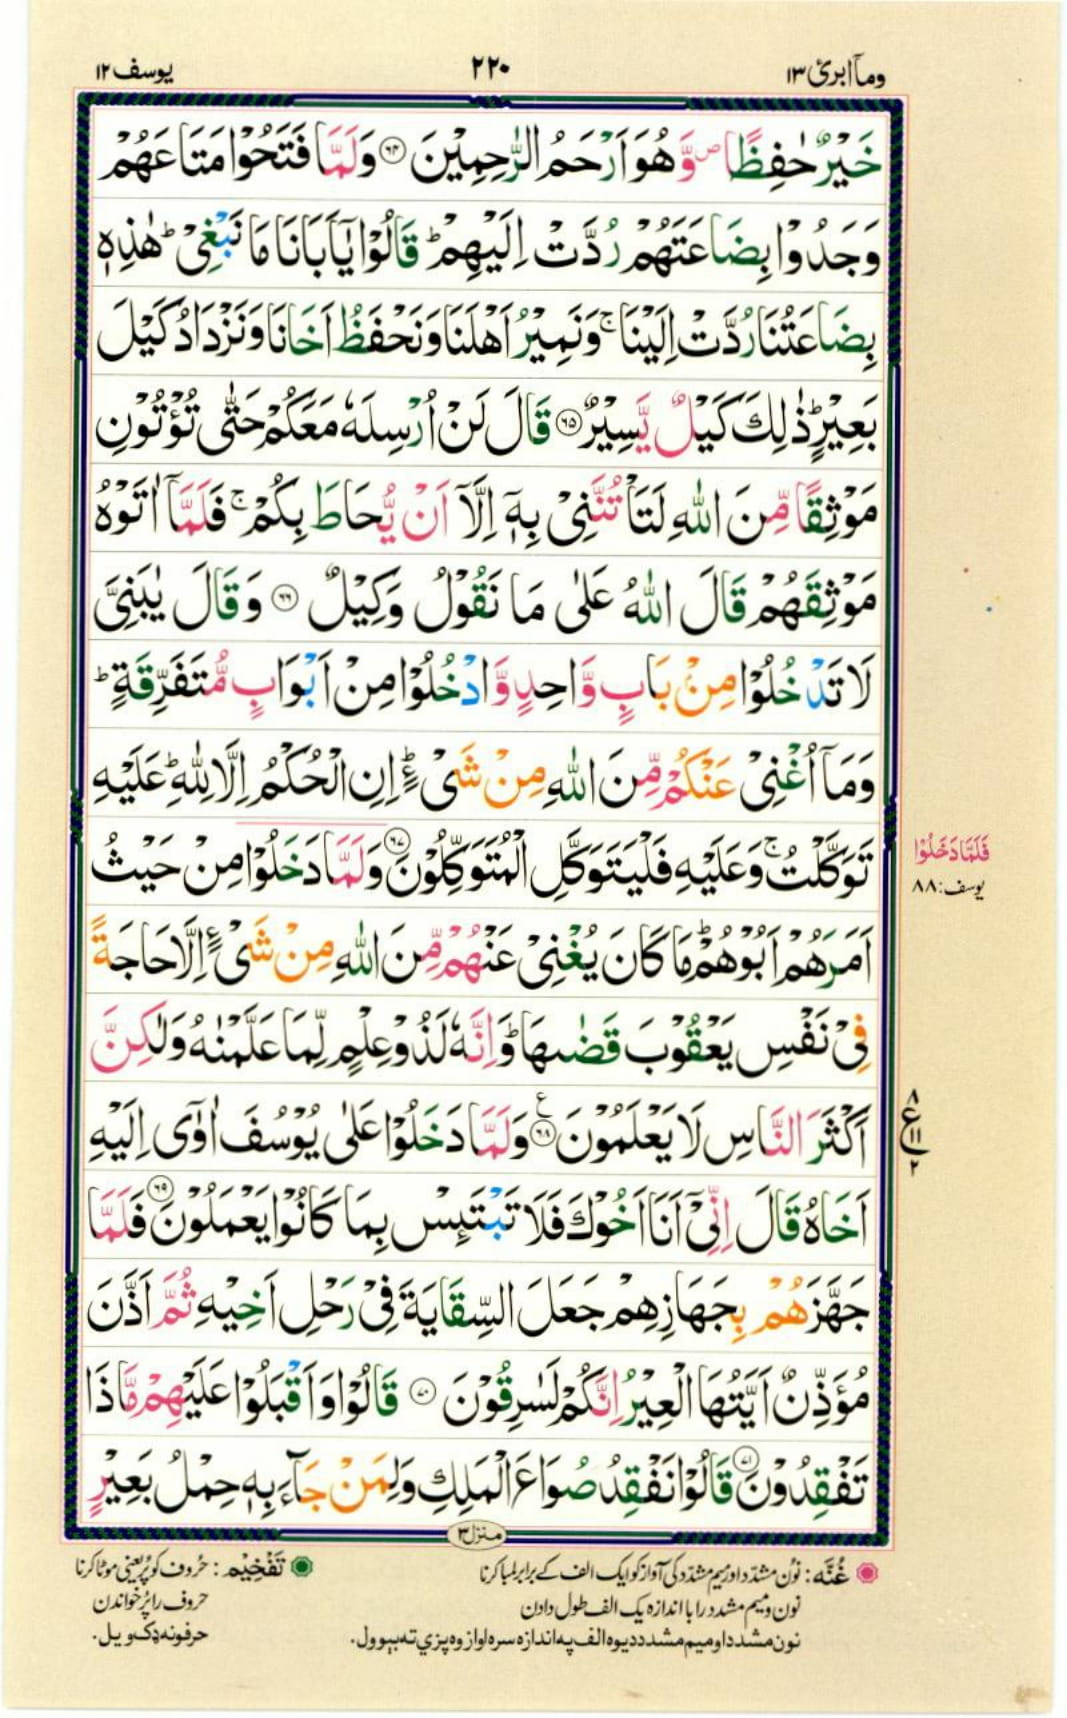 وماۤ ابرئ ۱۳
۲۲۰
یوسف ۱۲
خَیْرٌ حٰفِظًا ۪ وَّ هُوَ اَرْحَمُ الرّٰحِمِیْنَ ﴿۶۴﴾ وَلَمَّا فَتَحُوْا مَتَاعَهُمْ
وَجَدُوْا بِضَاعَتَهُمْ رُدَّتْ اِلَیْهِمْ ؕ قَالُوْا یٰۤاَبَانَا مَا نَبْغِیْ ؕ هٰذِهٖ
بِضَاعَتُنَا رُدَّتْ اِلَیْنَا ۚ وَنَمِیْرُ اَهْلَنَا وَنَحْفَظُ اَخَانَا وَنَزْدَادُ كَیْلَ
بَعِیْرٍ ؕ ذٰلِكَ كَیْلٌ یَّسِیْرٌ ﴿۶۵﴾ قَالَ لَنْ اُرْسِلَهٗ مَعَكُمْ حَتّٰی تُؤْتُوْنِ
مَوْثِقًا مِّنَ اللّٰهِ لَتَاْتُنَّنِیْ بِهٖۤ اِلَّاۤ اَنْ یُّحَاطَ بِكُمْ ۚ فَلَمَّاۤ اٰتَوْهُ
مَوْثِقَهُمْ قَالَ اللّٰهُ عَلٰی مَا نَقُوْلُ وَكِیْلٌ ﴿۶۶﴾ وَ قَالَ یٰبَنِیَّ
لَا تَدْخُلُوْا مِنْۢ بَابٍ وَّاحِدٍ وَّادْخُلُوْا مِنْ اَبْوَابٍ مُّتَفَرِّقَةٍ ؕ
وَمَاۤ اُغْنِیْ عَنْكُمْ مِّنَ اللّٰهِ مِنْ شَیْءٍ ؕ اِنِ الْحُكْمُ اِلَّا لِلّٰهِ ؕ عَلَیْهِ
تَوَكَّلْتُ ۚ وَعَلَیْهِ فَلْیَتَوَكَّلِ الْمُتَوَكِّلُوْنَ ﴿۶۷﴾ وَلَمَّا دَخَلُوْا مِنْ حَیْثُ
اَمَرَهُمْ اَبُوْهُمْ ؕ مَا كَانَ یُغْنِیْ عَنْهُمْ مِّنَ اللّٰهِ مِنْ شَیْءٍ اِلَّا حَاجَةً
فِیْ نَفْسِ یَعْقُوْبَ قَضٰىهَا ؕ وَاِنَّهٗ لَذُوْ عِلْمٍ لِّمَا عَلَّمْنٰهُ وَلٰكِنَّ
اَكْثَرَ النَّاسِ لَا یَعْلَمُوْنَ ﴿۶۸﴾ وَلَمَّا دَخَلُوْا عَلٰی یُوْسُفَ اٰوٰۤی اِلَیْهِ
اَخَاهُ قَالَ اِنِّیْۤ اَنَا اَخُوْكَ فَلَا تَبْتَىِٕسْ بِمَا كَانُوْا یَعْمَلُوْنَ ﴿۶۹﴾ فَلَمَّا
جَهَّزَهُمْ بِجَهَازِهِمْ جَعَلَ السِّقَایَةَ فِیْ رَحْلِ اَخِیْهِ ثُمَّ اَذَّنَ
مُؤَذِّنٌ اَیَّتُهَا الْعِیْرُ اِنَّكُمْ لَسٰرِقُوْنَ ﴿۷۰﴾ قَالُوْا وَاَقْبَلُوْا عَلَیْهِمْ مَّاذَا
تَفْقِدُوْنَ ﴿۷۱﴾ قَالُوْا نَفْقِدُ صُوَاعَ الْمَلِكِ وَلِمَنْ جَآءَ بِهٖ حِمْلُ بَعِیْرٍ
فَلَمَّا دَخَلُوْا
یوسف:۸۸
۸
ع
۱۱
۲
منزل ۳
غُنَّه: نُون مشدّد اور میم مشدّد کی آواز کو ایک الف کے برابر لمبا کرنا
نون و میم مشدد را با اندازہ یک الف طول دادن
نون مشدد او میم مشدد دیوہ الف په اندازہ سرہ اواز وہ پزي ته بېوول.
تَفْخِیْم: حُروف کو پُر یعنی موٹا کرنا
حروف را پُر خواندن
حرفونه ډک ویل.